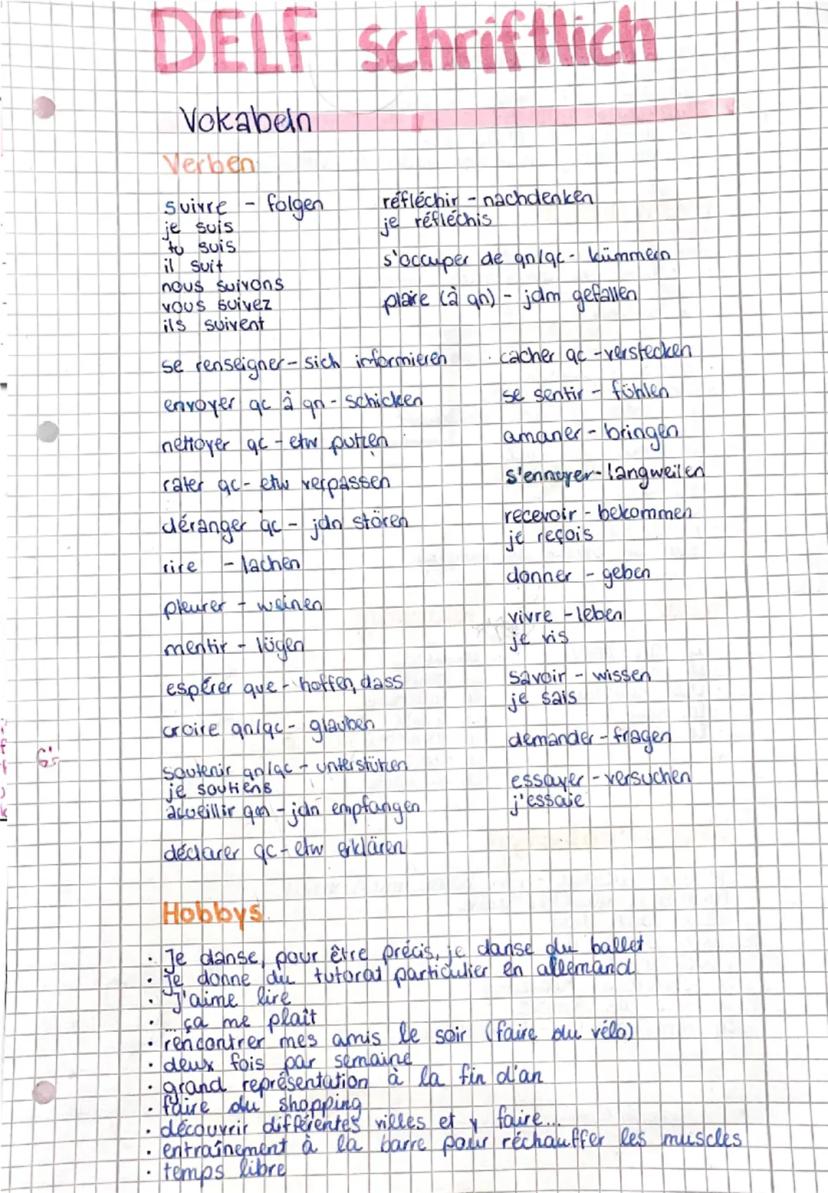 DELF schriftlich
Vokabeln
Verben
suivre - folgen
je suis
tu suis
il suit
nous suivons
vous suivez
ils suivent
réfléchir - nachdenken
je réfléchis
s'occuper de qn/qc - kümmern
plaire (à qn) - jdm gefallen
se renseigner - sich informieren
envoyer qc à qn - schicken
nettoyer qc - etw putzen
rater qc - etw verpassen
déranger qc - jdn stören
rire - lachen
pleurer - weinen
mentir - lügen
espérer que - hoffen, dass
croire qn/qc - glauben
soutenir qn/qc - unterstützen
je soutiens
accueillir qn - jdn empfangen
déclarer qc - etw erklären
cacher qc - verstecken
se sentir - fühlen
amaner - bringen
s'ennuyer - langweilen
recevoir - bekommen
je reçois
donner - geben
vivre - leben
je vis
savoir - wissen
je sais
demander - fragen
essayer - versuchen
j'essaie
Hobbys
· Je danse, pour être précis, je danse du ballet
· Je donne du tutorat particulier en allemand
· J'aime lire
· ... ça me plaît
· rencontrer mes amis le soir (faire du vélo)
· deux fois par semaine
· grand représentation à la fin d'an
· faire du shopping
· découvrir différentes villes et y faire...
· entraînement à la barre pour réchauffer les muscles
· temps libre